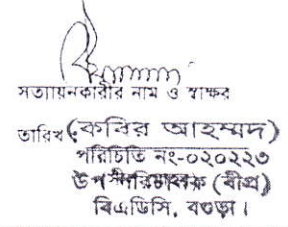 সত্যায়নকারীর নাম ও স্বাক্ষর
তারিখ (কবির আহম্মদ)
পরিচিতি নং-০২০২২৩
উপ পরিচালক (বীপ্র)
বিএডিসি, বগুড়া।